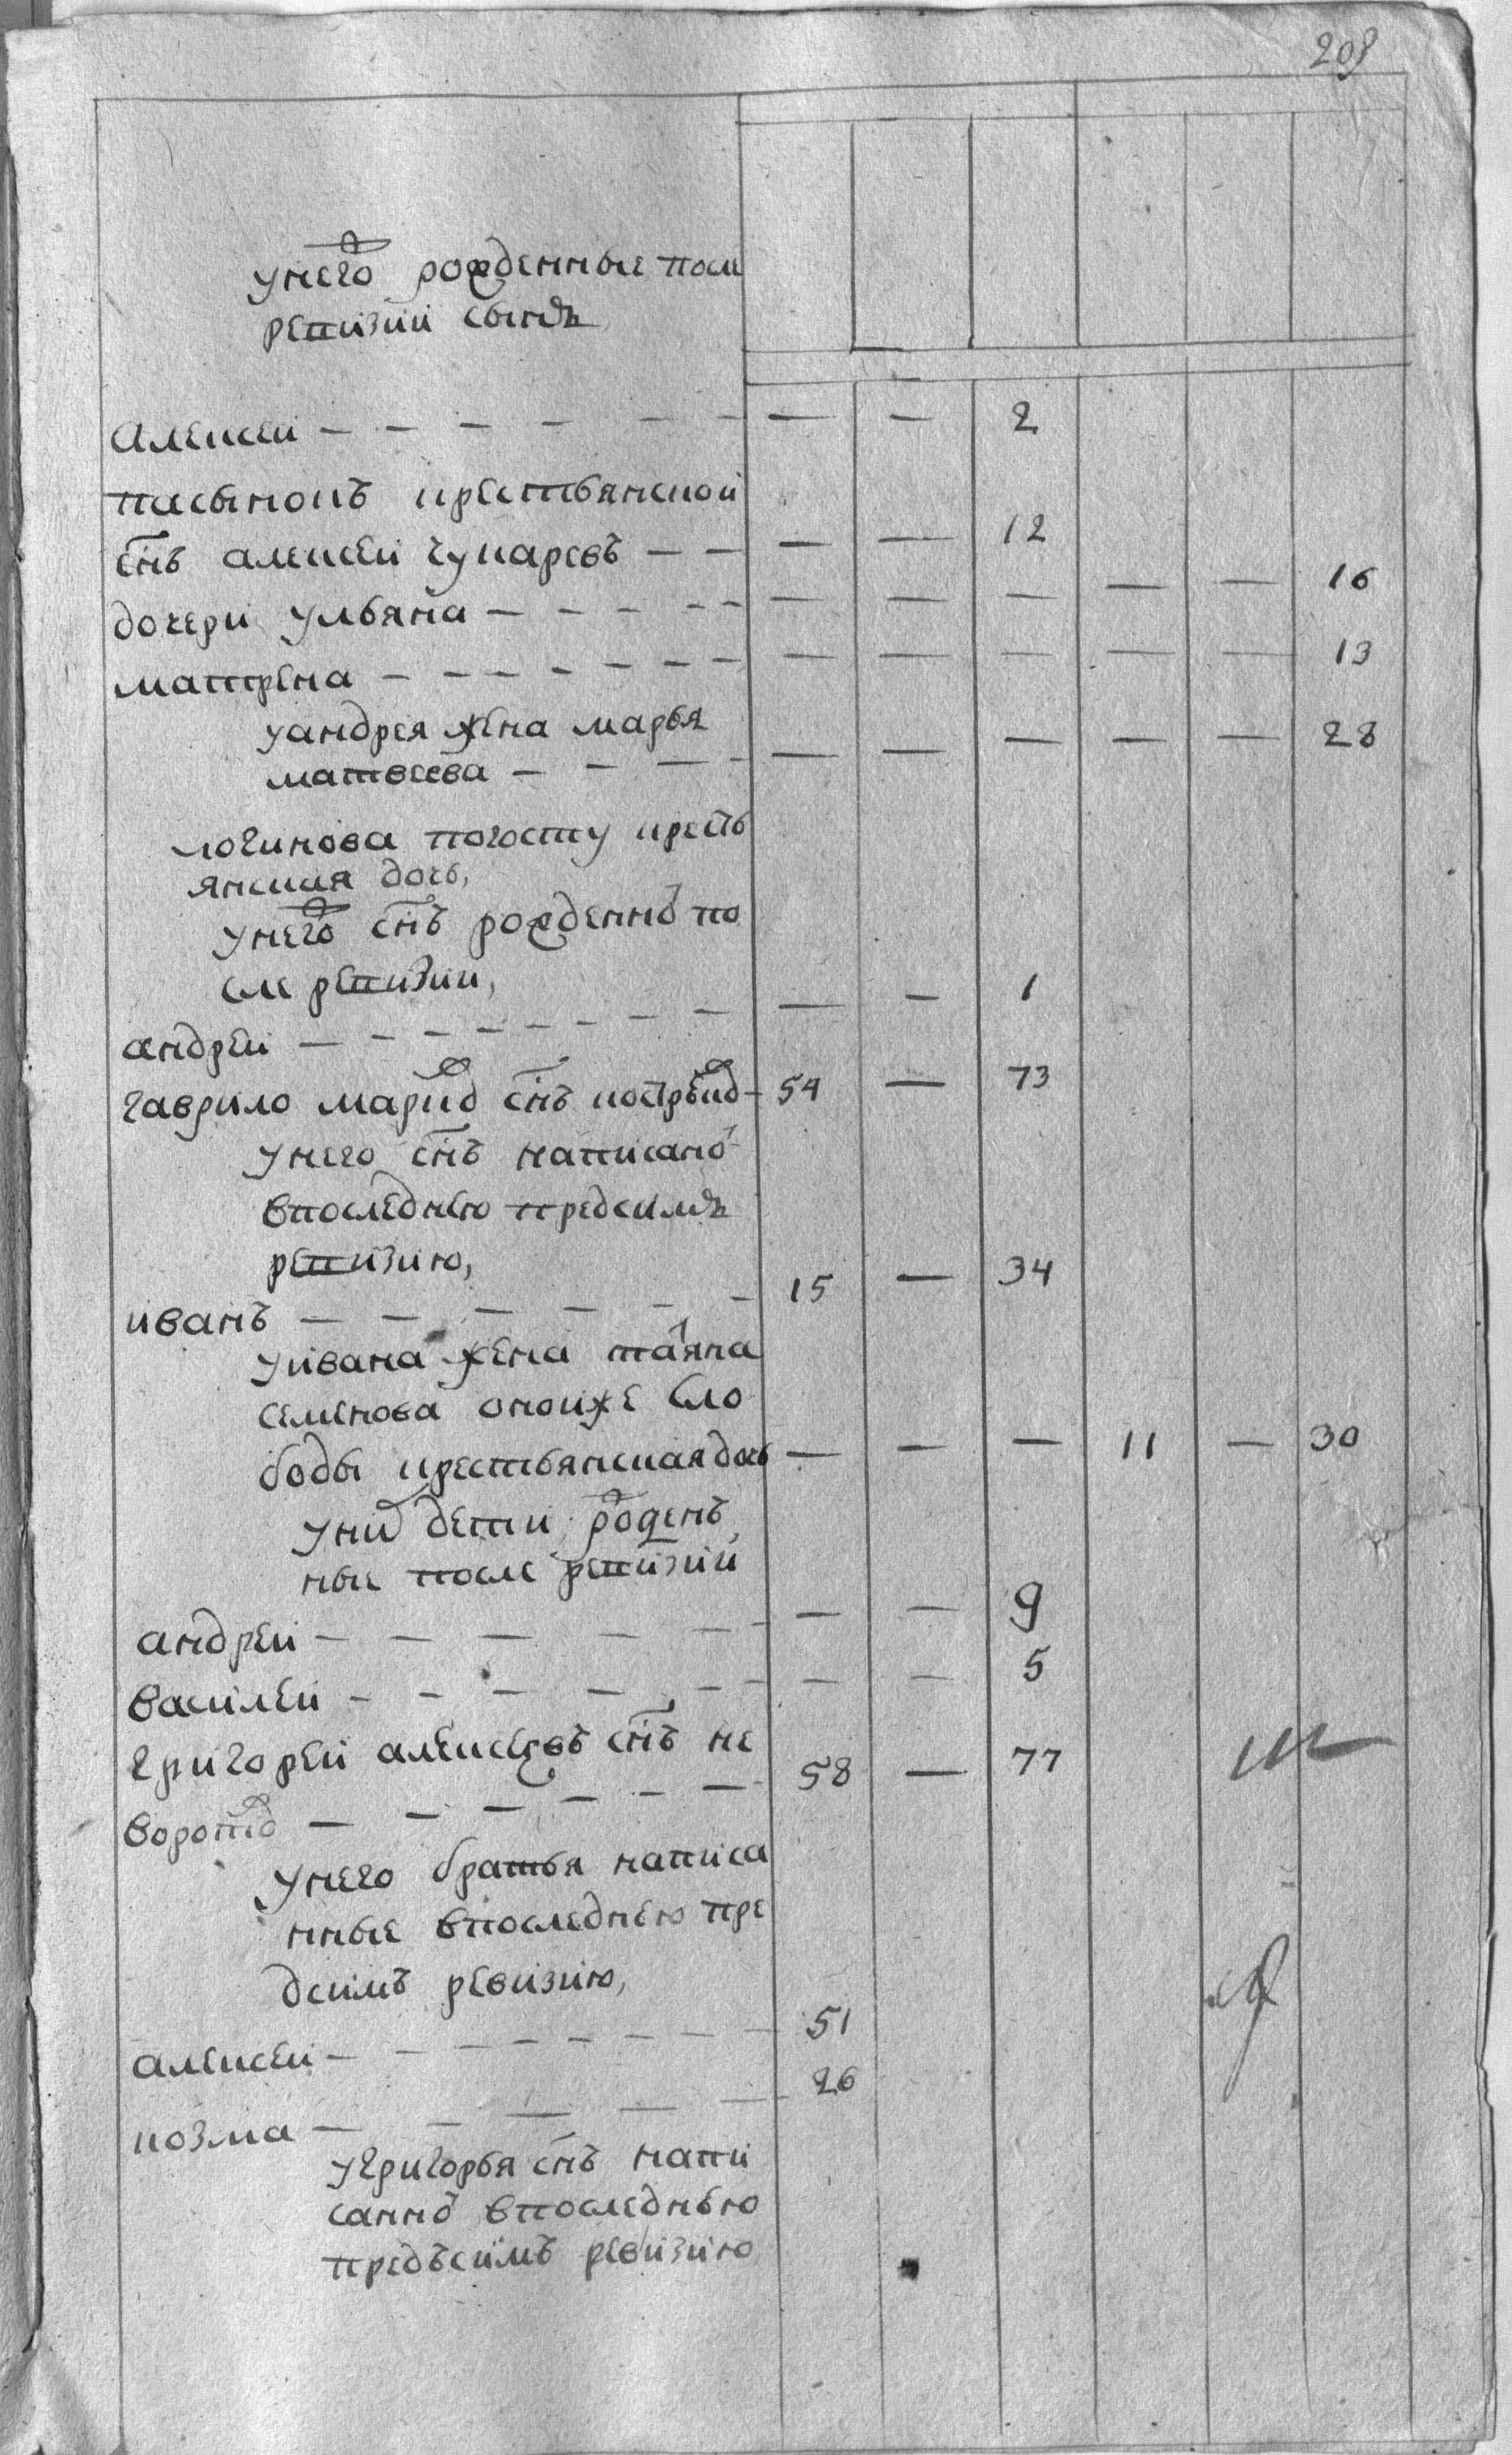 209
унего рожденные после
ревизии сынъ
алексей — — — — — — — 2
пасынокъ крестьянской
снъ алексей чупаревъ — — — — 12
дочери ульяна — — — — — — — — — — 16
матрена — — — — — — — — — — — — 13
уандрея жена марья
матвеева — — — — — — — — — 28
логинова погосту кресть
янская дочь,
унего снъ рожденно по
сле ревизии,
андрей — — — — — — — — — — 1
гаврило снъ 54 — 73
унего снъ написано
впоследнею предсимъ
ревизию,
иванъ — — — — — — 15 — 34
уивана жена татяна
семенова оной же сло
боды крестьянская дочь — — — 11 — 30
уних дети роженъ
ные после ревизии
андрей — — — — — — — — 9
василей — — — — — — — — 5
григорей алексеевъ снъ не
воротов — — — — — — 58 — 77
унего братья написа
нные впоследнею пре
дсимъ ревизию,
алексей — — — — — — — 51
козма — — — — — 26
угригорья снъ напи
санно впоследнью
предъсимъ ревизию